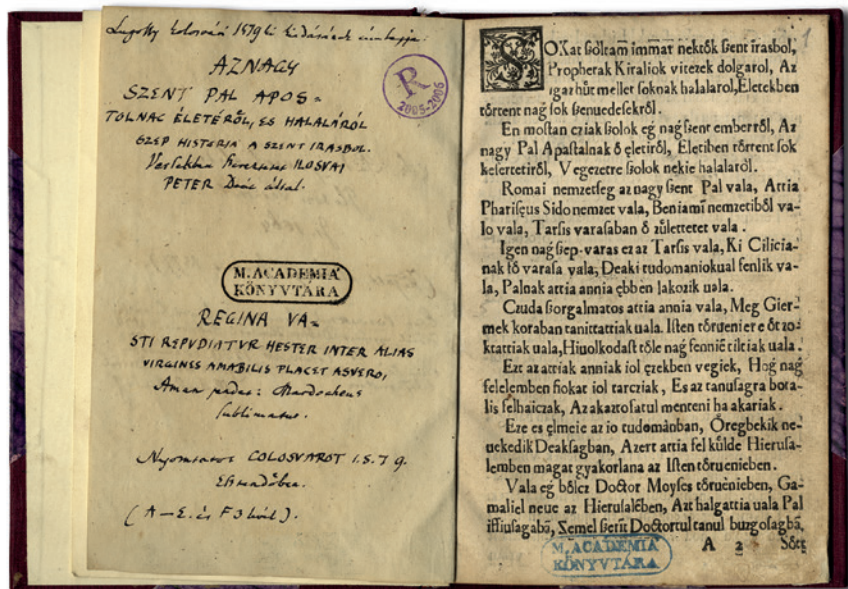 Lugossy kolosvári 1579 ki kiadásának címlapja:
AZ NAGY
SZENT PAL APOS=
TOLNAC ÉLETÉRŐL, ES HALALÁRÓL
SZEP HISTORIA A SZENT IRASBOL.
Versekben ILOSVAI
PETER Deác által.
M. ACADEMIA
KÖNYVTÁRA
REGINA VA=
STI REPVDIATVR HESTER INTER ALIAS
VIRGINES AMABILIS PLACET ASVERO,
Aman pendet: Mardocheus
sublimatur.
Nyomtatot COLOSVAROT 1.5.7 9.
Esztendőben.
(A—E. és F3 levél).
R
2005-2006
1
SOKat ßoltam immar nektők ßent irasbol,
Prophetak Kiraliok vitezek dolgarol, Az
igaz hűt mellet soknak halalarol, Eletekben
tőrtent nag̃ sok ßenuedesekről.
En mostan cziak ßolok eg̃ nag̃ ßent emberről, Az
nagy Pal Apastalnak ő eletiről, Eletiben tőrtent sok
kesertetiről, Vegezetre ßolok nekie halalarol.
Romai nemzetseg az nagy ßent Pal vala, Attia
Phariseus Sido nemzet vala, Beniamī nemzetiből va-
lo vala, Tarsis varasaban ő zűlettetet vala.
Igen nag̃ ßep-varas ez az Tarsis vala, Ki Cilicia-
nak fő varasa vala, Deaki tudomaniokual fenlik va-
la, Palnak attia annia ebben lakozik uala.
Czuda ßorgalmatos attia annia vala, Meg Gier-
mek koraban tanittattiak uala. Isten tőrueniere őt zo-
ktattiak uala, Hiuolkodast tőle nag̃ fennie tiltiak uala.
Ezt az attiak anniak iol ezekben vegiek, Hog̃ nag̃
felelemben fiokat iol tarcziak, Es az tanusagra bota-
lis felhaiczak, Az akaztofatul menteni ha akariak.
Eze es elmeie az io tudomànban, Őregbekik ne-
uekedik Deaksagban, Azert attia fel kűlde Hierusa-
lemben magat gyakorlana az Isten tőruenieben.
Vala eg̃ bőlcz Doctor Moyses tőruēnieben, Ga-
maliel neue az Hierusalēben, Azt halgattia uala Pal
iffiusagabā, Zemel ßerīt Doctortul tanul buzgosagbā,
A 2 Sőtt
M. ACADEMIA
KÖNYVTARA